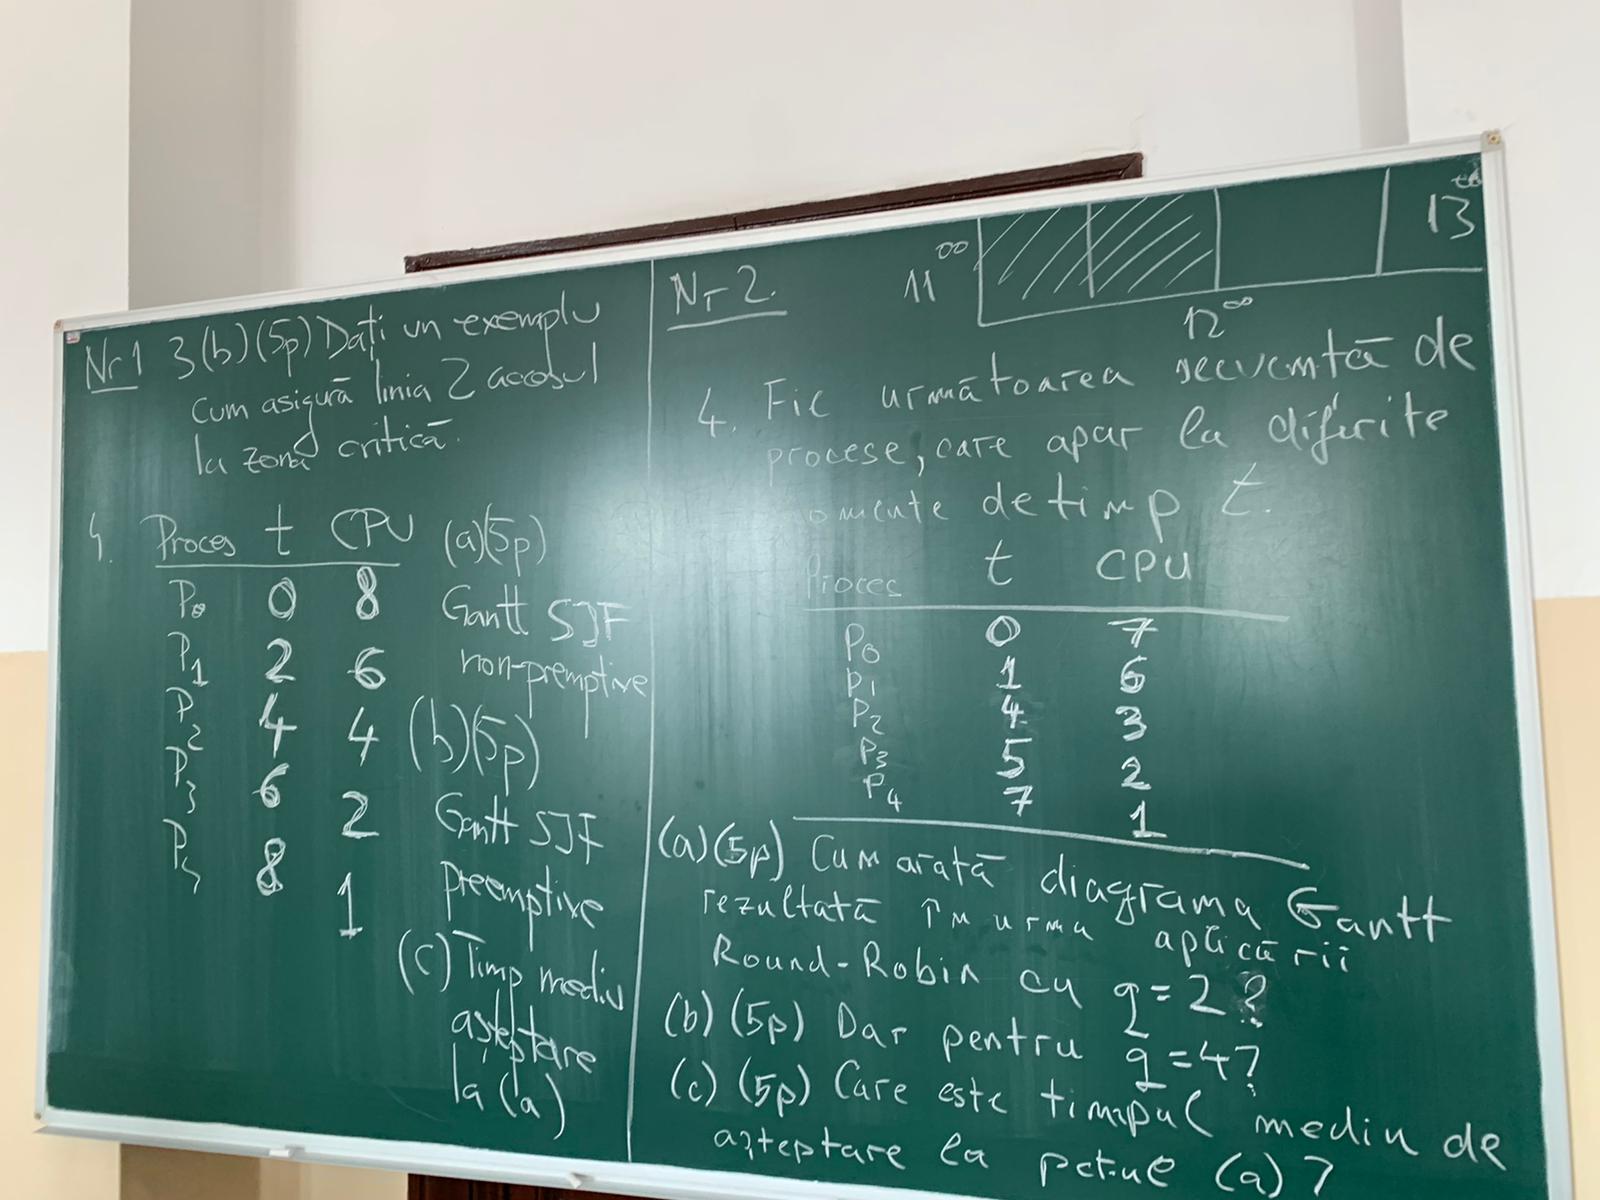 Nr 1 3(b)(5p) Dați un exemplu
cum asigură linia 2 accesul
la zona critică.
4. Proces t CPU
P0 0 8
P1 2 6
P2 4 4
P3 6 2
P4 8 1
(a)(5p)
Gantt SJF
non-premptive
(b)(5p)
Gantt SJF
preemptive
(c) Timp mediu
așteptare
la (a)
Nr 2.
11 00
12 00
13
4. Fie următoarea secvență de
procese, care apar la diferite
omente de timp t.
Proces t CPU
P0 0 7
P1 1 6
P2 4 3
P3 5 2
P4 7 1
(a)(5p) Cum arată diagrama Gantt
rezultată în urma aplicării
Round-Robin cu q=2?
(b) (5p) Dar pentru q=4?
(c) (5p) Care este timpul mediu de
așteptare la (a)?